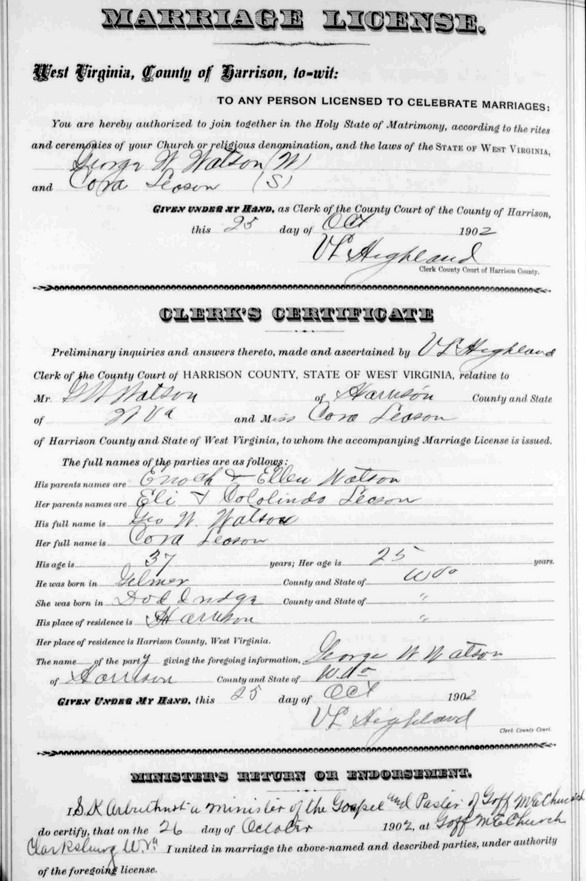 MARRIAGE LICENSE.
West Virginia, County of Harrison, to-wit:
TO ANY PERSON LICENSED TO CELEBRATE MARRIAGES:
You are hereby authorized to join together in the Holy State of Matrimony, according to the rites
and ceremonies of your Church or religious denomination, and the laws of the STATE OF WEST VIRGINIA,
George W Watson (W)
and Cora Leason (S)
GIVEN UNDER MY HAND, as Clerk of the County Court of the County of Harrison,
this 25 day of Oct 1902
VL Highland
Clerk County Court of Harrison County.
CLERK'S CERTIFICATE
Preliminary inquiries and answers thereto, made and ascertained by VL Highland
Clerk of the County Court of HARRISON COUNTY, STATE OF WEST VIRGINIA, relative to
Mr. GW Watson of Harrison County and State
of W Va and Miss Cora Leason
of Harrison County and State of West Virginia, to whom the accompanying Marriage License is issued.
The full names of the parties are as follows:
His parents names are Enoch & Ellen Watson
Her parents names are Eli & Leason
His full name is Geo W. Watson
Her full name is Cora Leason
His age is 37 years; Her age is 25 years.
He was born in Gilmer County and State of WVa
She was born in Doddridge County and State of "
His place of residence is Harrison "
Her place of residence is Harrison County, West Virginia.
The name of the party giving the foregoing information, George W Watson
of Harrison County and State of W.Va
GIVEN UNDER MY HAND, this 25 day of Oct 1902
VL Highland
Clerk County Court.
MINISTER'S RETURN OR ENDORSEMENT.
I S.K Arbuthnot a minister of the Gospel and Paster of Goff M E Church
do certify, that on the 26 day of October 1902, at Goff M E Church
Clarksburg W.Va I united in marriage the above-named and described parties, under authority
of the foregoing license.